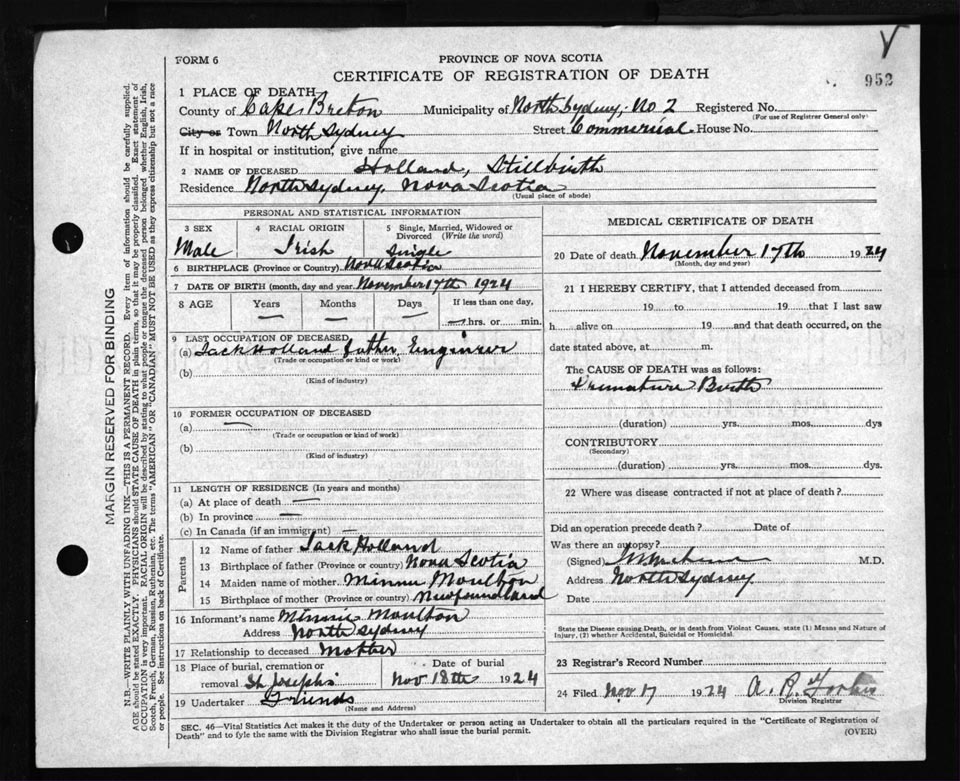 FORM 6
PROVINCE OF NOVA SCOTIA
CERTIFICATE OF REGISTRATION OF DEATH
952
1 PLACE OF DEATH
County of Cape Breton Municipality of North Sydney, No. 2 Registered No.
(For use of Registrar General only)
City or Town North Sydney Street Commercial House No.
If in hospital or institution, give name
2 NAME OF DECEASED Holland, Stillbirth
Residence North Sydney, Nova Scotia
(Usual place of abode)
PERSONAL AND STATISTICAL INFORMATION
3 SEX 4 RACIAL ORIGIN 5 Single, Married, Widowed or Divorced (Write the word)
Male Irish Single
6 BIRTHPLACE (Province or Country) Nova Scotia
7 DATE OF BIRTH (month, day and year) November 17th 1924
8 AGE Years Months Days If less than one day,
— — — — hrs. or min.
9 LAST OCCUPATION OF DECEASED
(a) Jack Holland father Engineer
(Trade or occupation or kind of work)
(b)
(Kind of industry)
10 FORMER OCCUPATION OF DECEASED
(a) —
(Trade or occupation or kind of work)
(b)
(Kind of industry)
11 LENGTH OF RESIDENCE (In years and months)
(a) At place of death —
(b) In province —
(c) In Canada (if an immigrant) —
Parents
12 Name of father Jack Holland
13 Birthplace of father (Province or country) Nova Scotia
14 Maiden name of mother Minnie Moulton
15 Birthplace of mother (Province or country) Newfoundland
16 Informant's name Minnie Moulton
Address North Sydney
17 Relationship to deceased Mother
18 Place of burial, cremation or Date of burial
removal St Joseph's Nov 18th 1924
19 Undertaker Friends
(Name and Address)
MEDICAL CERTIFICATE OF DEATH
20 Date of death November 17th 1924
(Month, day and year)
21 I HEREBY CERTIFY, that I attended deceased from
19 to 19 that I last saw
h alive on 19 and that death occurred, on the
date stated above, at m.
The CAUSE OF DEATH was as follows:
Premature Birth
(duration) yrs. mos. dys
CONTRIBUTORY
(Secondary)
(duration) yrs. mos. dys.
22 Where was disease contracted if not at place of death?
Did an operation precede death? Date of
Was there an autopsy?
(Signed) M.D.
Address North Sydney
Date
State the Disease causing Death, or in death from Violent Causes, state (1) Means and Nature of
Injury, (2) whether Accidental, Suicidal or Homicidal.
23 Registrar's Record Number
24 Filed Nov 17 1924 A. R. Forbes
Division Registrar
SEC. 46—Vital Statistics Act makes it the duty of the Undertaker or person acting as Undertaker to obtain all the particulars required in the "Certificate of Registration of
Death" and to fyle the same with the Division Registrar who shall issue the burial permit. (OVER)
MARGIN RESERVED FOR BINDING
N.B.—WRITE PLAINLY WITH UNFADING INK—THIS IS A PERMANENT RECORD. Every item of information should be carefully supplied.
AGE should be stated EXACTLY. PHYSICIANS should STATE CAUSE OF DEATH in plain terms, so that it may be properly classified. Exact statement of
OCCUPATION is very important. RACIAL ORIGIN will be described by stating to what people or tongue the deceased person belonged, whether English, Irish,
Scotch, French, German, Russian, Ruthenian, etc. The terms "AMERICAN" OR "CANADIAN" MUST NOT BE USED as they express citizenship but not a race
or people. See instructions on back of Certificate.